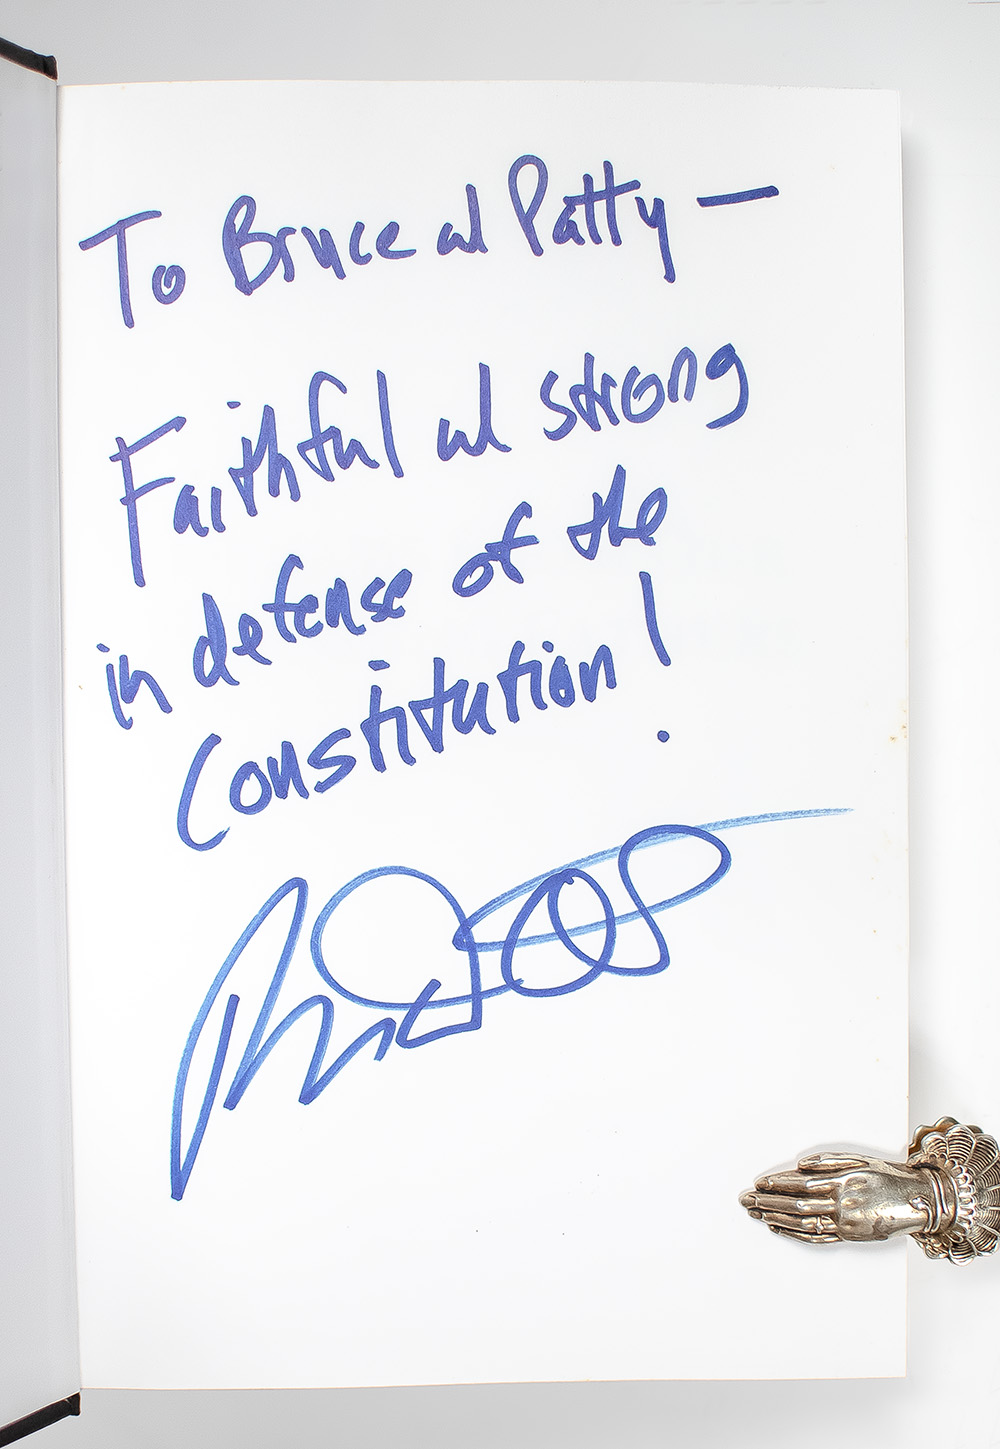 To Bruce and Patty —
Faithful and strong
in defense of the
Constitution!